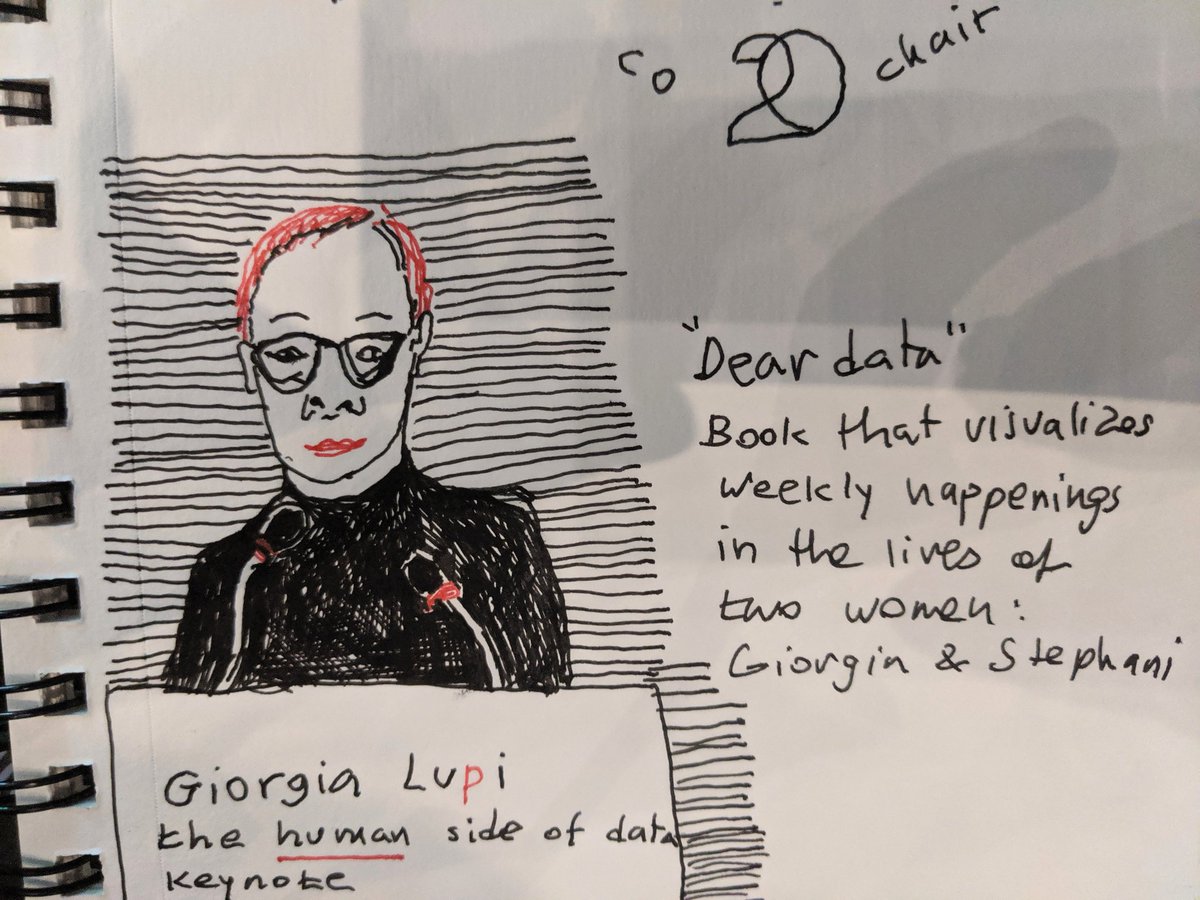 co 20 chair
"Dear data"
Book that visualizes
weekly happenings
in the lives of
two women:
Giorgin & Stephani
Giorgia Lupi
the human side of data
keynote